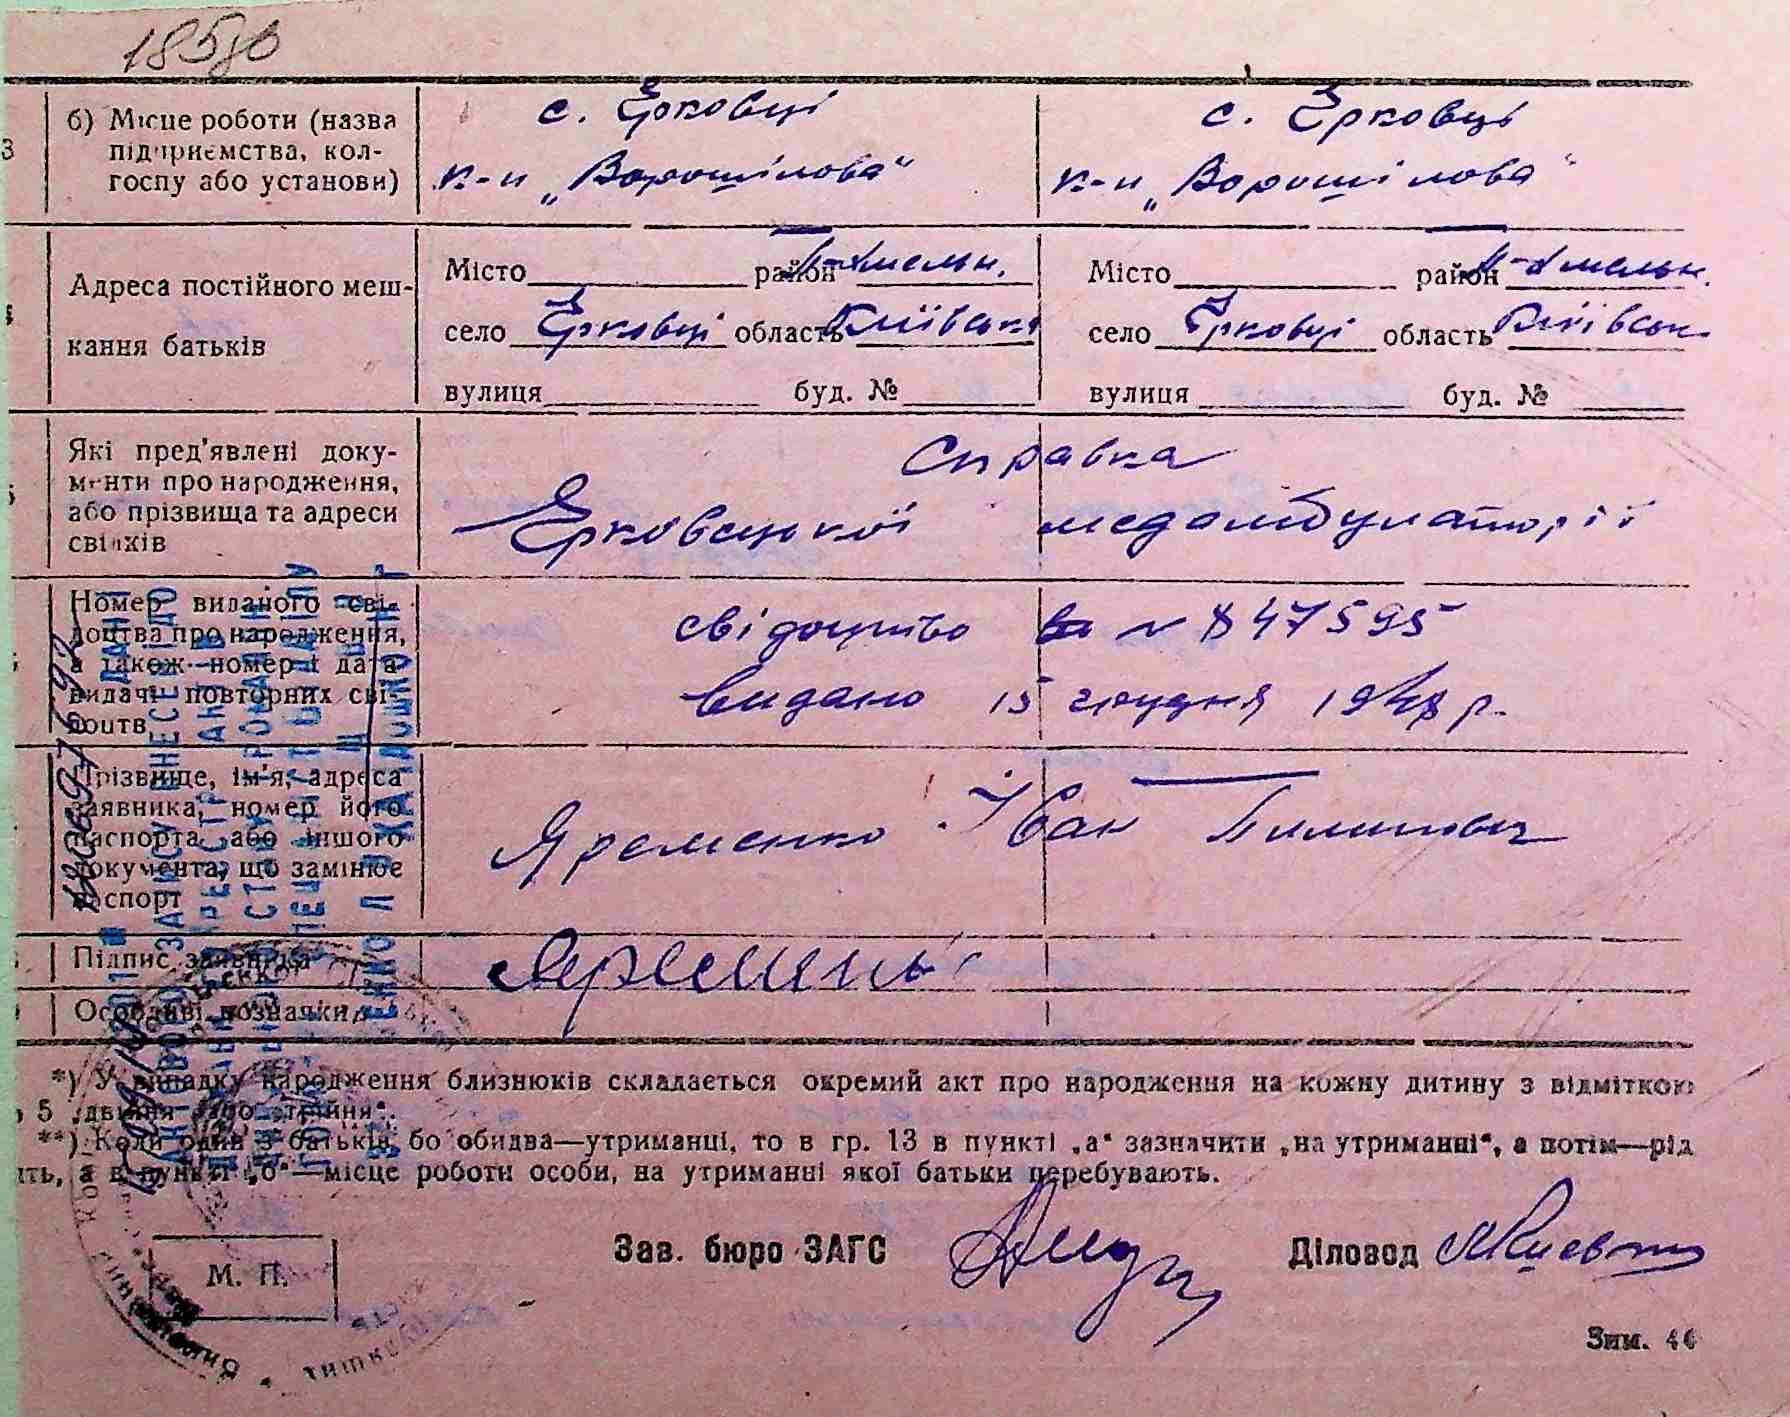 185
б) Місце роботи (назва
підприємства, кол-
госпу або установи)
с. Єрковці
к-п „Ворошілова"
с. Єрковць
к-п „Ворошілова"
Адреса постійного меш-
кання батьків
Місто район П-Хмельн.
село Єрковці область Київська
вулиця буд. №
Місто район П-Хмельн.
село Єрковці область Київськ
вулиця буд. №
Які пред'явлені доку-
менти про народження,
або прізвища та адреси
свідків
Справка
Єрковецької медамбулаторії
Номер виданого сві-
доцтва про народження,
а також номер і дата
видачі повторних сві-
доцтв
свідоцтво № 847595
видано 15 грудня 1948 р.
Прізвище, ім'я, адреса
заявника, номер його
паспорта або іншого
документа, що замінює
паспорт
Яременко Іван Пилипович
Підпис заявника
Особливі позначки
*) У випадку народження близнюків складається окремий акт про народження на кожну дитину з відміткою
5 „двійня або трійня".
**) Коли один з батьків, бо обидва—утриманці, то в гр. 13 в пункті „а" зазначити „на утриманні", а потім—рід
ть, а в пункті „б"—місце роботи особи, на утриманні якої батьки перебувають.
М. П.
Зав. бюро ЗАГС
Діловод
Зим. 44